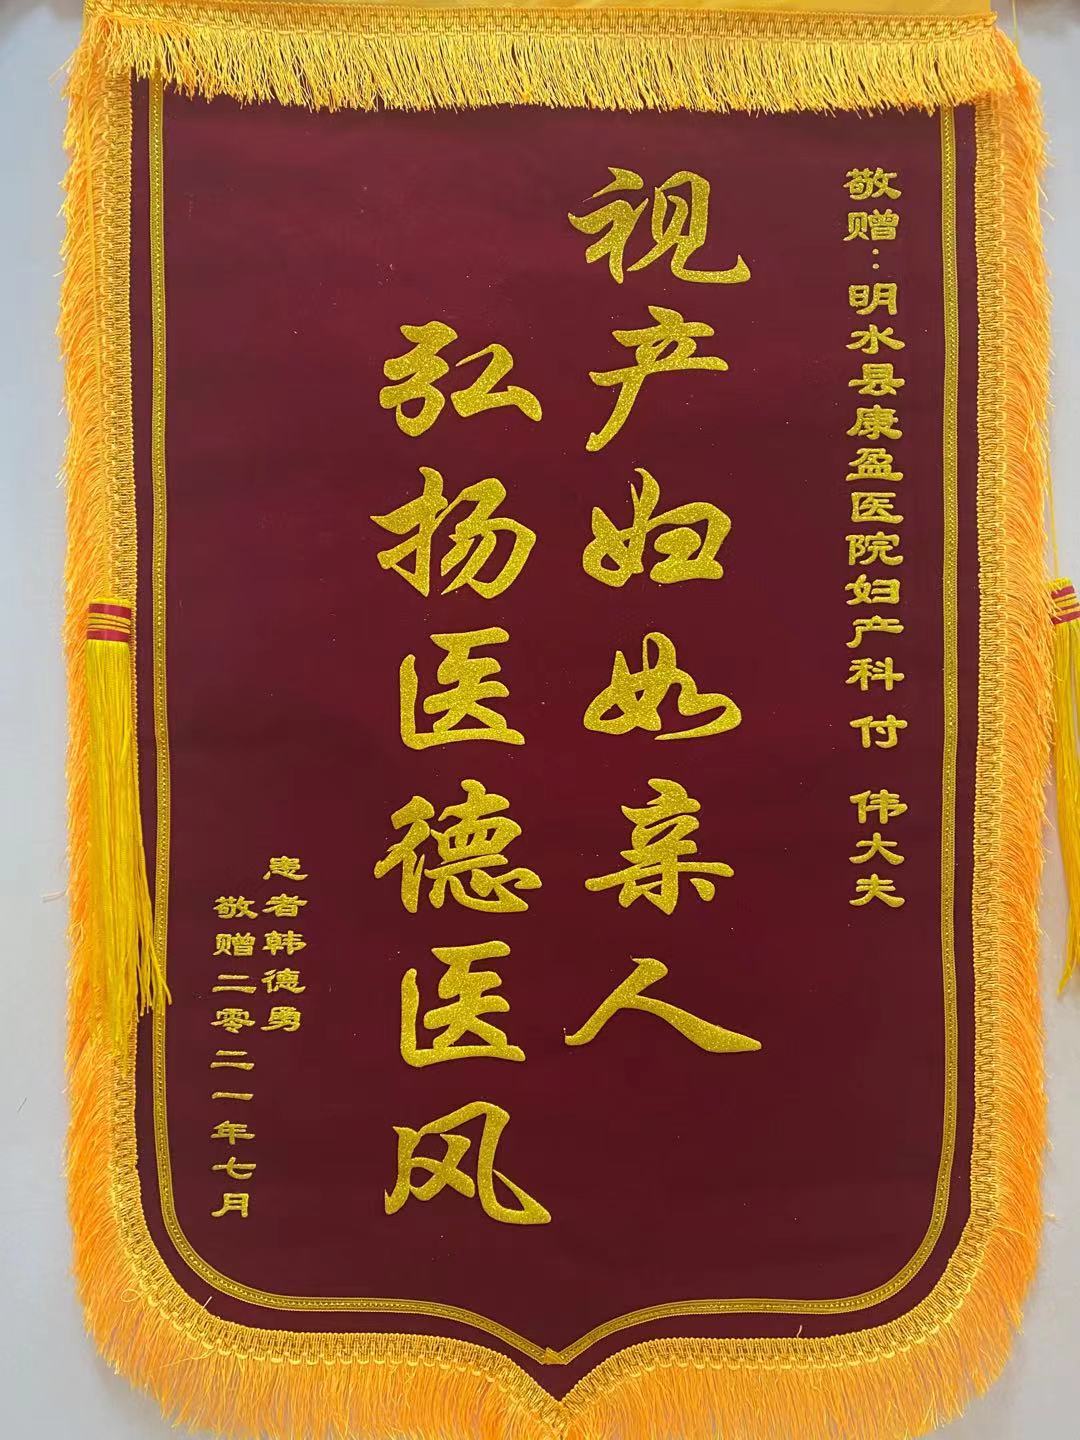 敬赠：明水县康盈医院妇产科 付 伟大夫
视产妇如亲人
弘扬医德医风
患者韩德勇
敬赠二零二一年七月